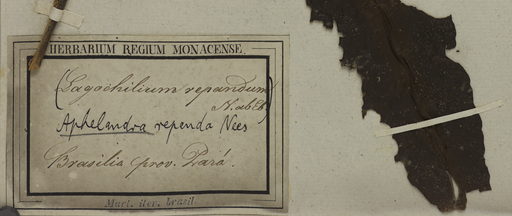 HERBARIUM REGIUM MONACENSE.
(Lagochilium repandum
N. ab Es.)
Aphelandra repanda Nees
Brasilia prov. Pará.
Mart. iter. brasil